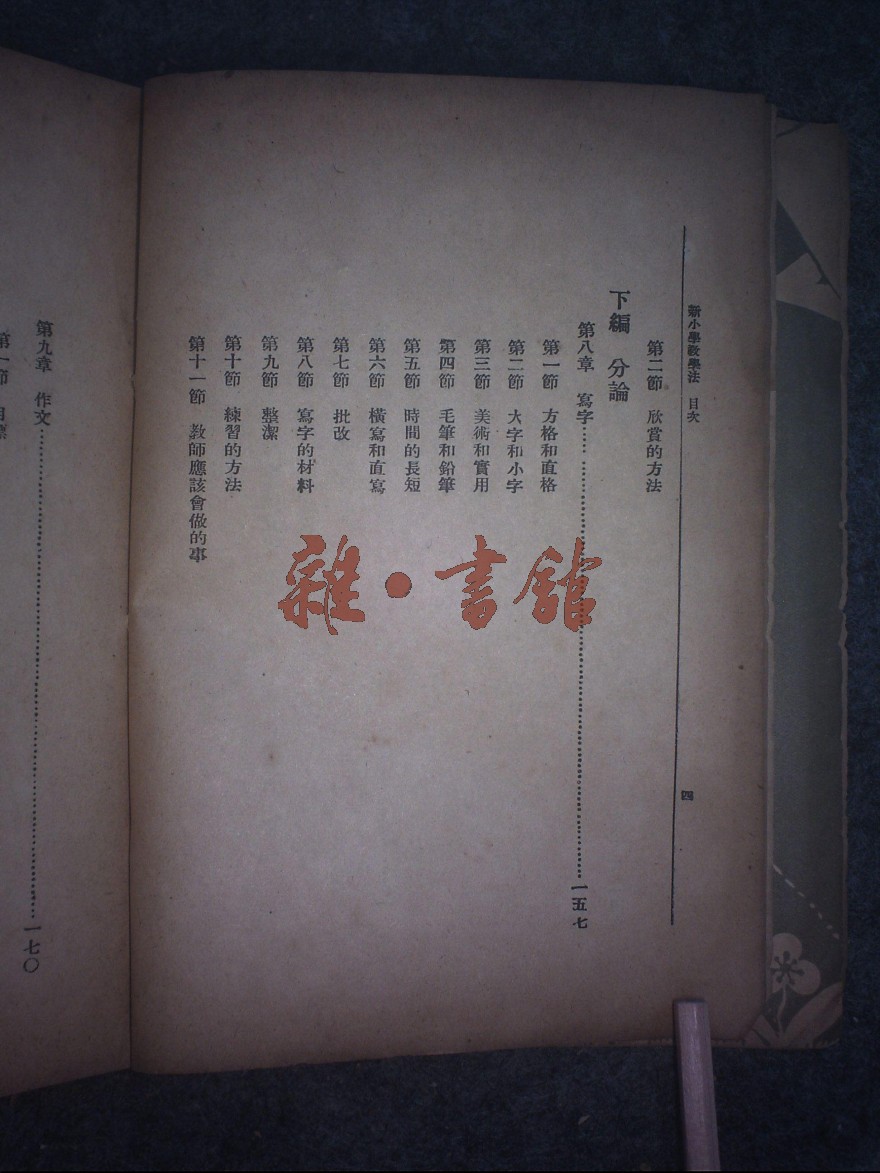 新小學教學法 目次
四
第二節 欣賞的方法
下編 分論
第八章 寫字……………………一五七
第一節 方格和直格
第二節 大字和小字
第三節 美術和實用
第四節 毛筆和鉛筆
第五節 時間的長短
第六節 橫寫和直寫
第七節 批改
第八節 寫字的材料
第九節 整潔
第十節 練習的方法
第十一節 教師應該會做的事
第九章 作文……………………一七〇
第一節 目標
雜·書館